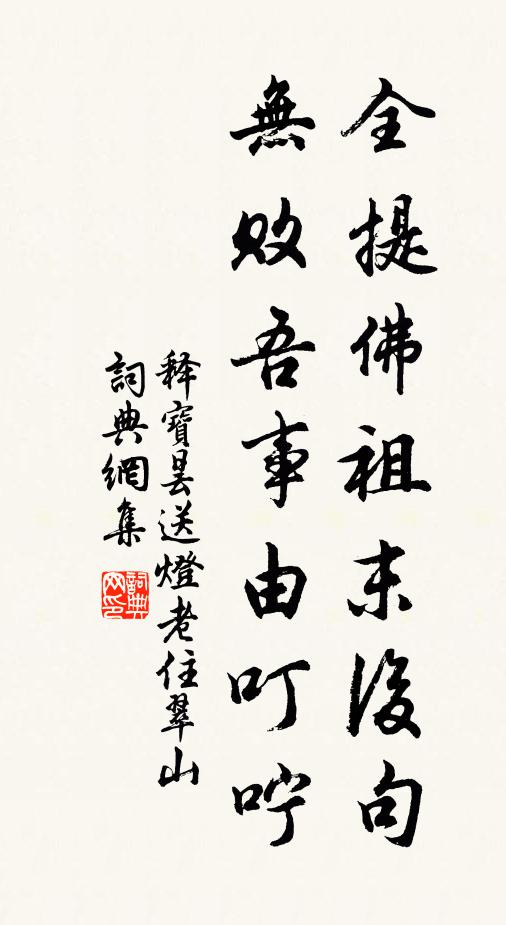 全提佛祖末後句
無敗吾事由叮咛
释寶曇送燈老住翠山
詞典網集
詞典网印